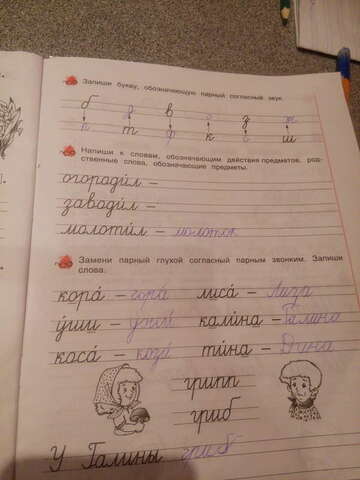 Запиши букву, обозначающую парный согласный звук.
б д в г з ж
п т ф к с ш
Напиши к словам, обозначающим действия предметов, род-
ственные слова, обозначающие предметы.
огороди́л –
заводи́л –
молоти́л – молоток
Замени парный глухой согласный парным звонким. Запиши
слова.
кора́ – гора́ лиса́ – Лиза
у́ши – кали́на – Галина
коса́ – коза́ ти́на – Дина
грипп
гриб
У Галины гриб